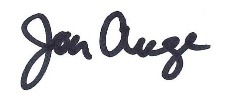 Jon Auge